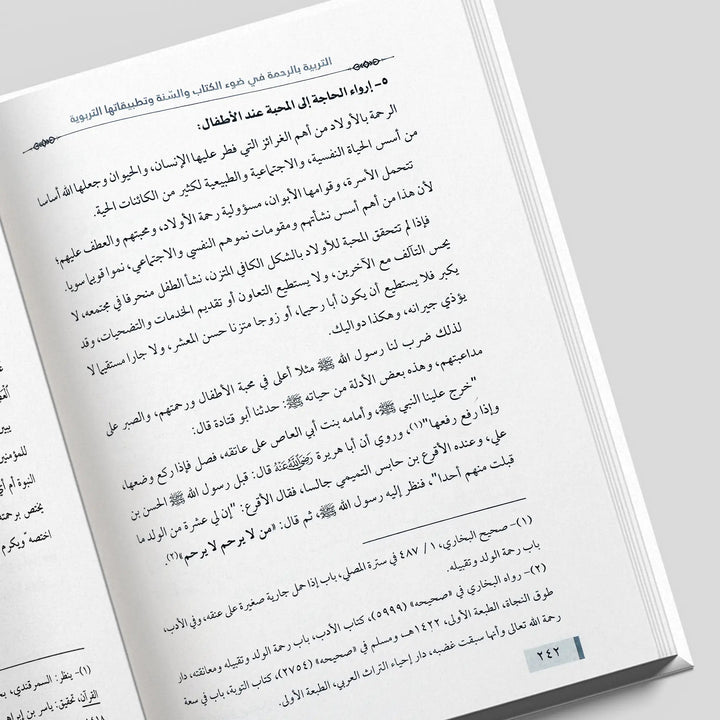 التربية بالرحمة في ضوء الكتاب والسّنة وتطبيقاتها التربوية
٥- إرواء الحاجة إلى المحبة عند الأطفال:
الرحمة بالأولاد من أهم الغرائز التي فطر عليها الإنسان، والحيوان وجعلها الله أساسا
من أسس الحياة النفسية، والاجتماعية والطبيعية لكثير من الكائنات الحية.
تتحمل الأسرة، وقوامها الأبوان، مسؤولية رحمة الأولاد، ومحبتهم والعطف عليهم؛
لأن هذا من أهم أسس نشأتهم ومقومات نموهم النفسي والاجتماعي، نموا قويما سويا.
فإذا لم تتحقق المحبة للأولاد بالشكل الكافي المتزن، نشأ الطفل منحرفا في مجتمعه، لا
يحس التآلف مع الآخرين، ولا يستطيع التعاون أو تقديم الخدمات والتضحيات، وقد
يكبر فلا يستطيع أن يكون أبا رحيما، أو زوجا متزنا حسن المعشر، ولا جارا مستقيما لا
يؤذي جيرانه، وهكذا دواليك.
لذلك ضرب لنا رسول الله ﷺ مثلا أعلى في محبة الأطفال ورحمتهم، والصبر على
مداعبتهم، وهذه بعض الأدلة من حياته ﷺ: حدثنا أبو قتادة قال:
"خرج علينا النبي ﷺ، وأمامه بنت أبي العاص على عاتقه، فصل فإذا ركع وضعها،
وإذا رفع رفعها"(١)، وروي أن أبا هريرة رَضِيَ اللَّهُ عَنْهُ قال: قبل رسول الله ﷺ الحسن بن
علي، وعنده الأقرع بن حابس التميمي جالسا، فقال الأقرع: "إن لي عشرة من الولد ما
قبلت منهم أحدا"، فنظر إليه رسول الله ﷺ، ثم قال: «من لا يرحم لا يرحم»(٢).
(١)- صحيح البخاري، ١ / ٤٨٧ في سترة المصلي، باب إذا حمل جارية صغيرة على عنقه، وفي الأدب،
باب رحمة الولد وتقبيله.
(٢)- رواه البخاري في «صحيحه» (٥٩٩٩)، كتاب الأدب، باب رحمة الولد وتقبيله ومعانقته، دار
طوق النجاة، الطبعة الأولى، ١٤٢٢هـ، ومسلم في «صحيحه» (٢٧٥٤)، كتاب التوبة، باب في سعة
رحمة الله تعالى وأنها سبقت غضبه، دار إحياء التراث العربي، الطبعة الأولى.
٢٤٢
للمؤمنين
النبوة أم أي
يختص برحمته
اختصه ويكرم
(١)- ينظر: السمرقندي، بح
القرآن، تحقيق: ياسر بن إبراهي